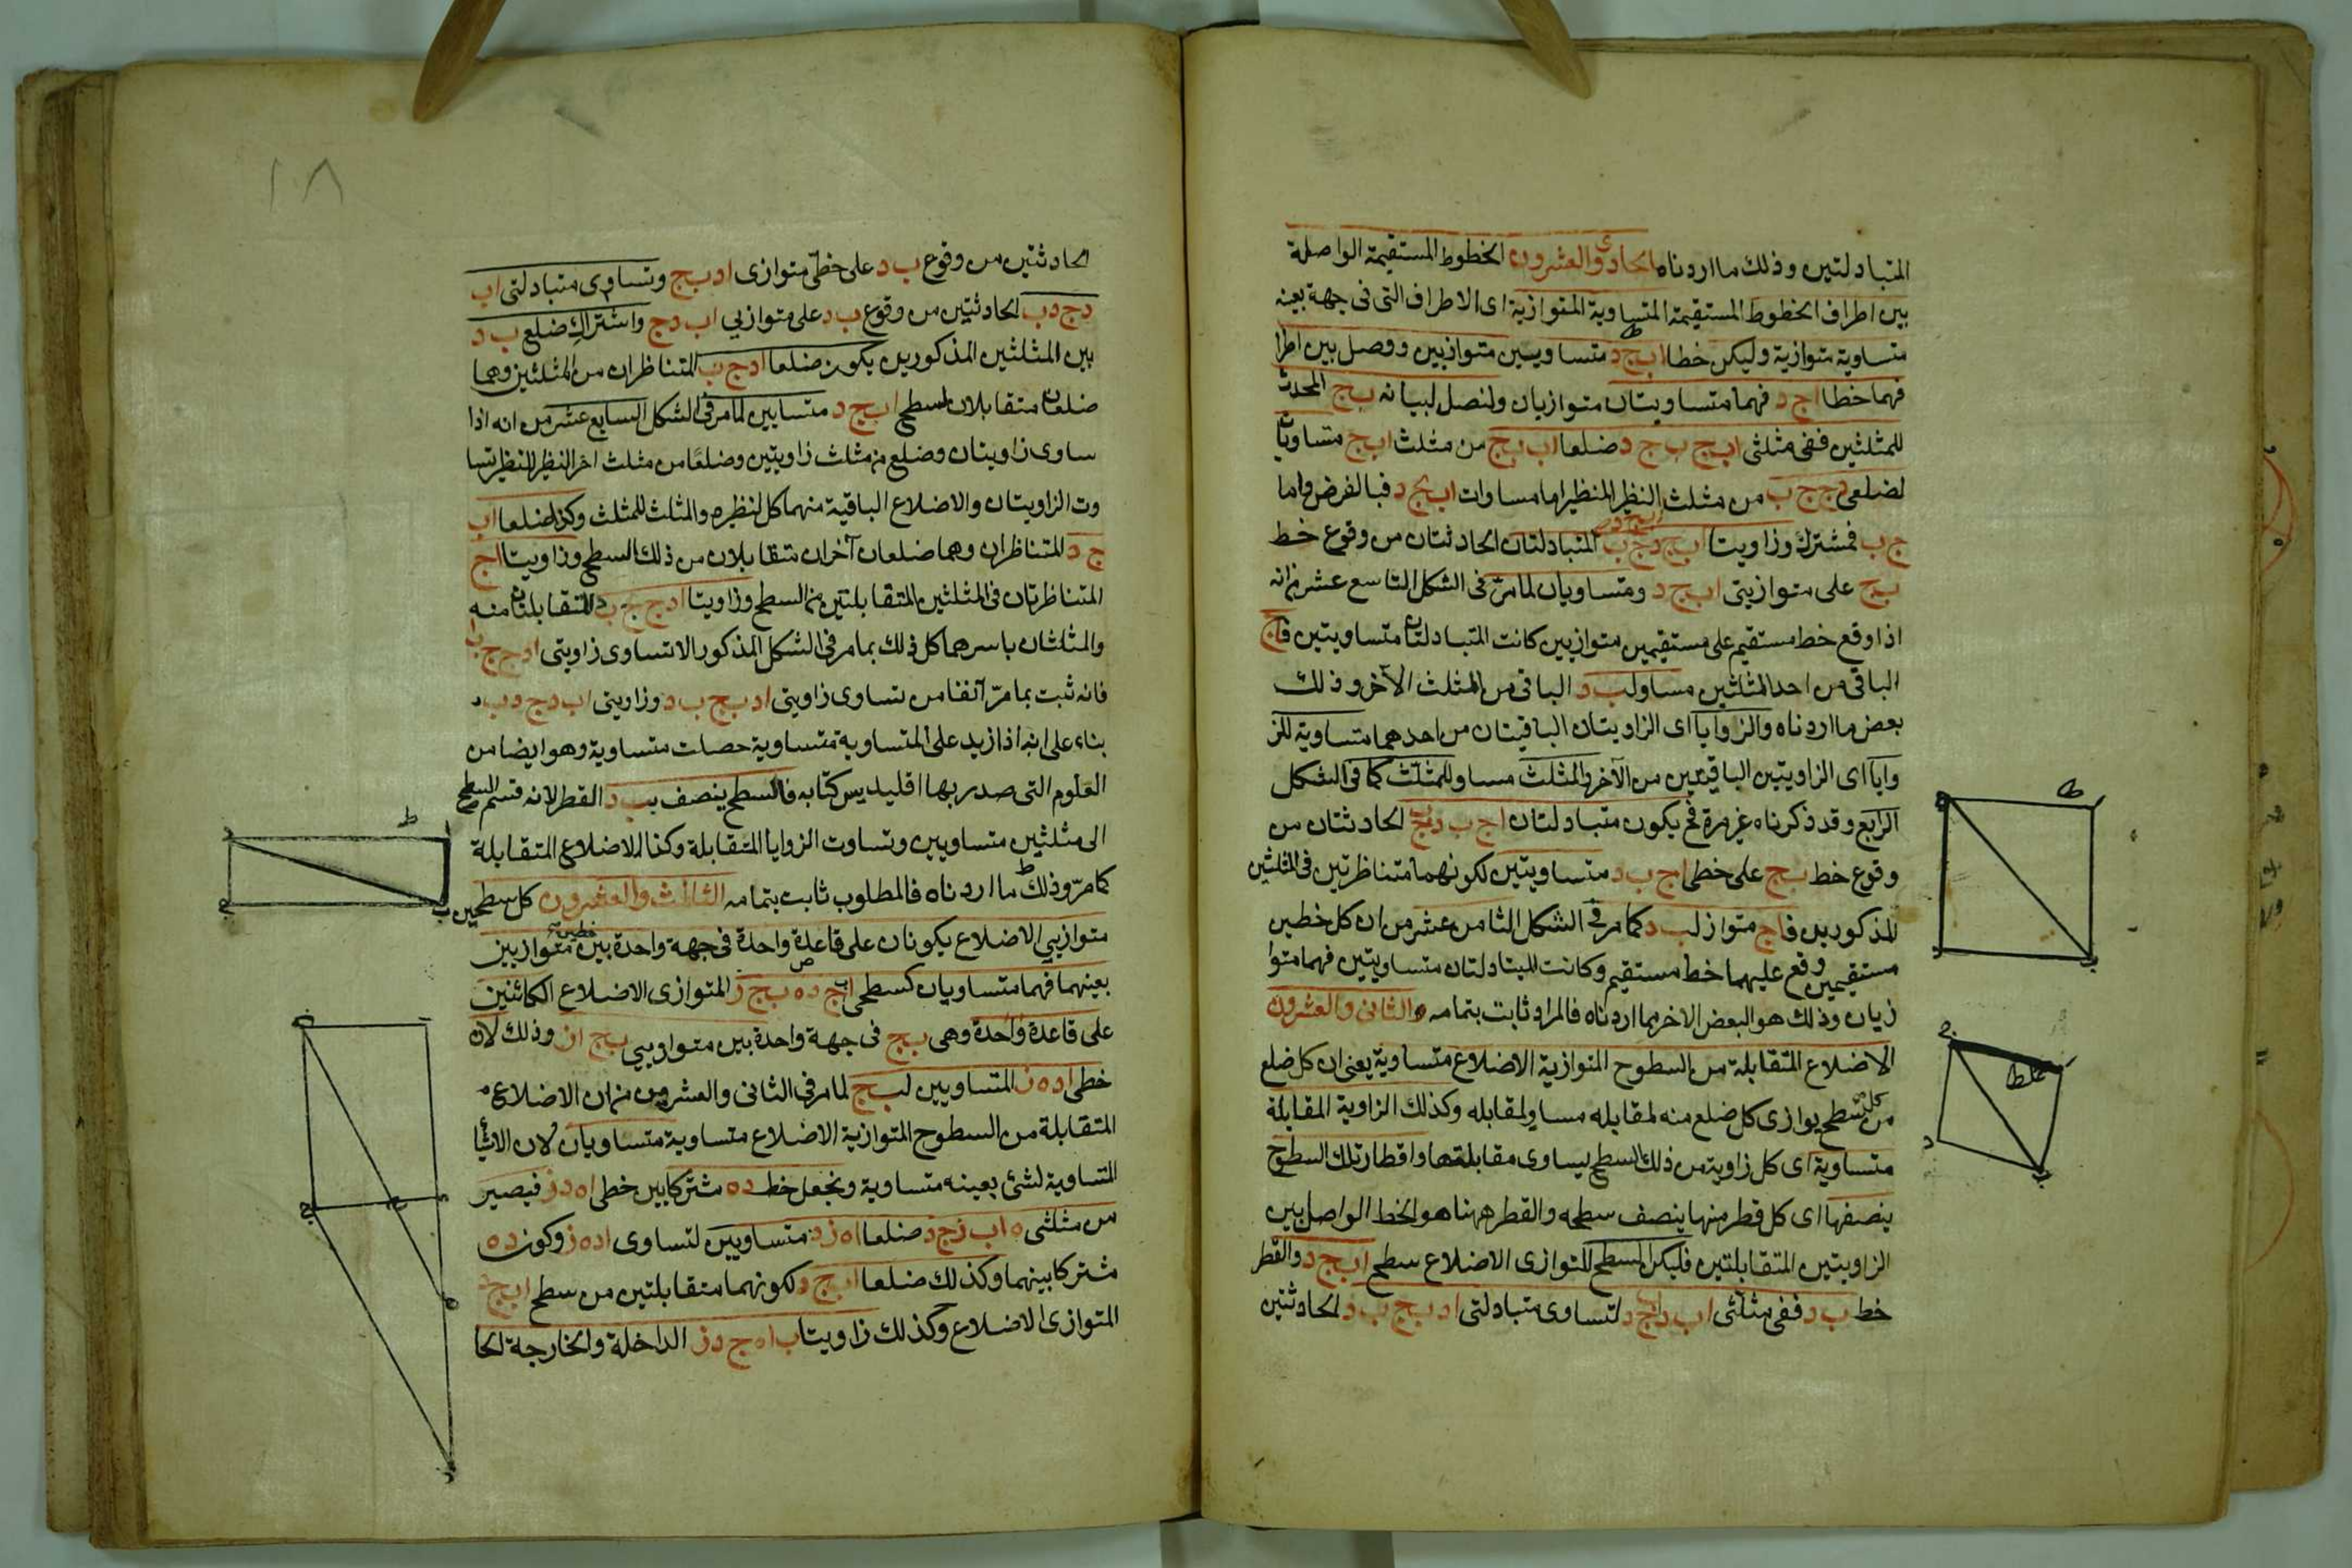 المتبادلتين وذلك ما اردناه الحادى والعشرون الخطوط المستقيمة الواصلة
بين اطراف الخطوط المستقيمة المتساوية المتوازية اى الاطراف التى فى جهة بعينه
متساوية متوازية وليكن خطا اب ج د متساويين متوازيين ووصل بين اطرا
فهما خطا اج د فهما متساويتان متوازيان ولنصل لبيانه ب ج المحدث
للمثلثين ففى مثلثى اب ج ب ج د ضلعا اب ب ج من مثلث اب ج متساويان
لضلعى د ج ج ب من مثلث النظير للنظير اما مساوات اب ج د فبالفرض واما
ج ب فمشترك وزاويتا اب ج د ج ب المتبادلتان الحادثتان من وقوع خط
ب ج على متوازيتى اب ج د ومتساويان لما مرّ فى الشكل التاسع عشر من انه
اذا وقع خط مستقيم على مستقيمين متوازيين كانت المتبادلتان متساويتين فاج
الباقى من احد المثلثين مساو لب د الباقى من المثلث الآخر وذلك
بعض ما اردناه والزوايا اى الزاويتان الباقيتان من احدهما متساوية للز
وايا اى الزاويتين الباقيتين من الآخر والمثلث مساو للمثلث كما فى الشكل
الرابع وقد ذكرناه غير مرة فح يكون متبادلتان اج ب د ب ج الحادثتان من
وقوع خط ب ج على خطى اج ب د متساويتين لكونهما متناظرتين فى المثلثين
المذكورين فاج متواز لب د كما مر فى الشكل الثامن عشر من ان كل خطين
مستقيمين وقع عليهما خط مستقيم وكانت المتبادلتان متساويتين فهما متوا
زيان وذلك هو البعض الاخر مما اردناه فالمراد ثابت بتمامه الثانى والعشرون
الاضلاع المتقابلة من السطوح المتوازية الاضلاع متساوية يعنى ان كل ضلع
من سطح يوازى كل ضلع منه لمقابله مساو لمقابله وكذلك الزاوية المقابلة
متساوية اى كل زاوية من ذلك السطح يساوى مقابلتها واقطار تلك السطوح
ينصفها اى كل قطر منها ينصف سطحه والقطر ههنا هو الخط الواصل بين
الزاويتين المتقابلتين فليكن السطح المتوازى الاضلاع سطح اب ج د والقطر
خط ب د ففى مثلثى اب د ب ج د لتساوى متبادلتى اد ب ج ب د الحادثتين
غلط
١٨
الحادثتين من وقوع ب د على خطّى متوازى اد ب ج وتساوى متبادلتى اب
د ج د ب الحادثتين من وقوع ب د على متوازيي اب د ج واشتراك ضلع ب د
بين المثلثين المذكورين يكون ضلعا اد ج ب المتناظران من المثلثين وهما
ضلعان متقابلان لسطح اب ج د متساويين لما مر فى الشكل السابع عشر من انه اذا
ساوى زاويتان وضلع من مثلث زاويتين وضلعًا من مثلث اخر النظير للنظير تسا
وت الزاويتان والاضلاع الباقية منهما كل لنظيره والمثلث للمثلث وكذا ضلعا اب
ج د المتناظران وهما ضلعان آخران متقابلان من ذلك السطح وزاويتا اج
المتناظرتان فى المثلثين المتقابلتين من السطح وزاويتا اد ج ج ب د المتقابلتان منه
والمثلثان باسرهما كل ذلك بما مر فى الشكل المذكور الا تساوى زاويتى اد ج ج ب ا
فانه ثبت بما مرّ آنفنا من تساوى زاويتى اد ب ج ب د وزاويتى اب د ج د ب
بناء على انه اذا زيد على المتساوية متساوية حصلت متساوية وهو ايضا من
العلوم التى صدر بها اقليديس كتابه فالسطح ينصف بب د القطر لانه قسم السطح
الى مثلثين متساويين وتساوت الزوايا المتقابلة وكذا الاضلاع المتقابلة
كما مرّ وذلك ما اردناه فالمطلوب ثابت بتمامه الثالث والعشرون كل سطحين
متوازيي الاضلاع يكونان على قاعدة واحدة فى جهة واحدة بين خطين متوازيين
بعينهما فهما متساويان كسطحى اب ج د ه ب ج ز المتوازى الاضلاع الكائنين
على قاعدة واحدة وهى ب ج فى جهة واحدة بين متوازيي ب ج از وذلك لان
خطى اد ه ز المتساويين لب ج لما مر فى الثانى والعشرون من ان الاضلاع
المتقابلة من السطوح المتوازية الاضلاع متساوية متساويان لان الاشيأ
المتساوية لشئ بعينه متساوية ونجعل خط د ه مشتركا بين خطى اه د ز فيصير
من مثلثى ه اب ز ج د ضلعا اه ز د متساويين لتساوى اد ه ز وكون د ه
مشتركا بينهما وكذلك ضلعا اب ج د لكونهما متقابلتين من سطح اب ج د
المتوازى الاضلاع وكذلك زاويتا ب اه ج د ز الداخلة والخارجة الحا